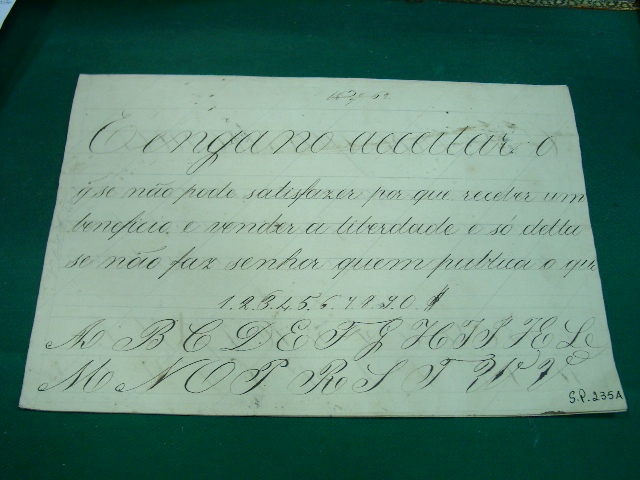 E engano acceitar o
q̃ se não pode satisfazer por que receber um
beneficio e vender a liberdade e só della
se não faz senhor quem publica o que
1.2.3.4.5.6.7.8.9.0. $
A B C D E F G H I J K L
M N O P R S T U V
S.P. 235A